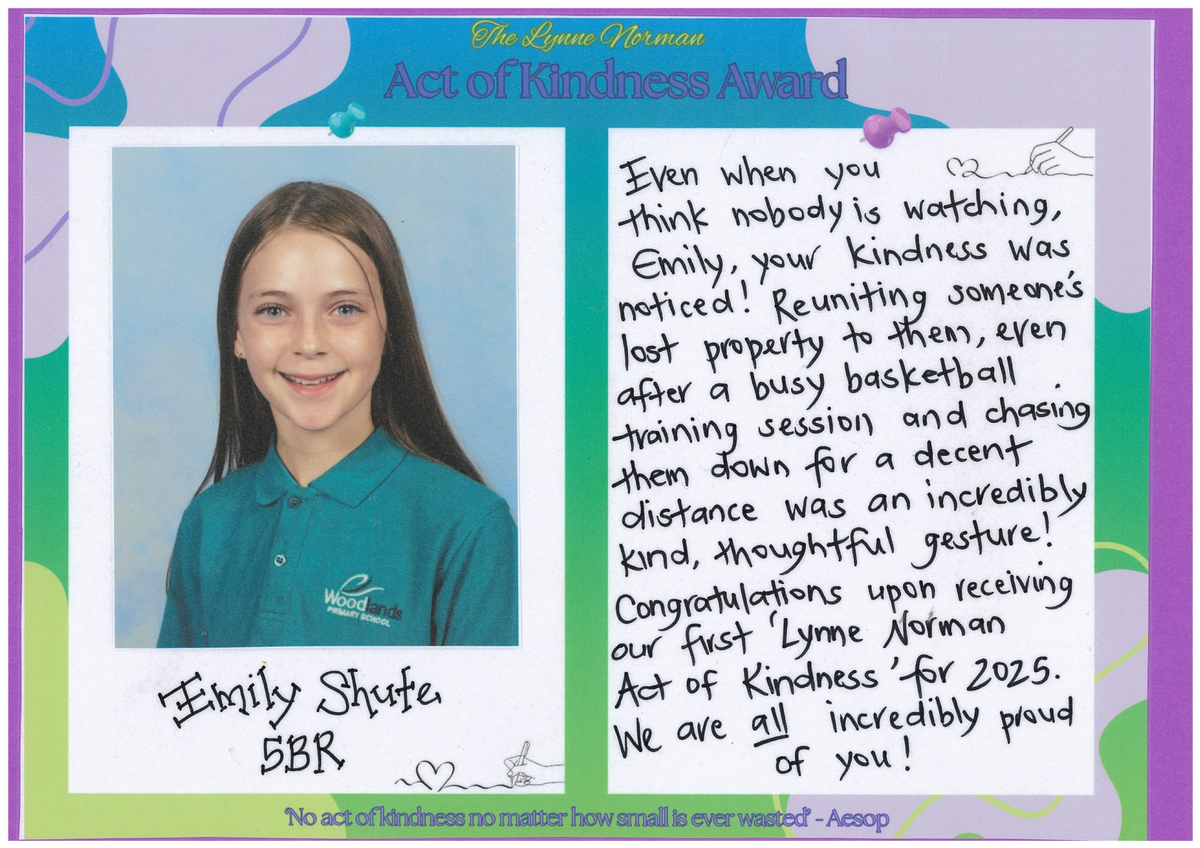 The Lynne Norman
Act of Kindness Award
Even when you
think nobody is watching,
Emily, your kindness was
noticed! Reuniting someone's
lost property to them, even
after a busy basketball
training session and chasing
them down for a decent
distance was an incredibly
kind, thoughtful gesture!
Congratulations upon receiving
our first 'Lynne Norman
Act of Kindness' for 2025.
We are all incredibly proud
of you!
Woodlands
PRIMARY SCHOOL
Emily Shute
5BR
'No act of kindness no matter how small is ever wasted' - Aesop